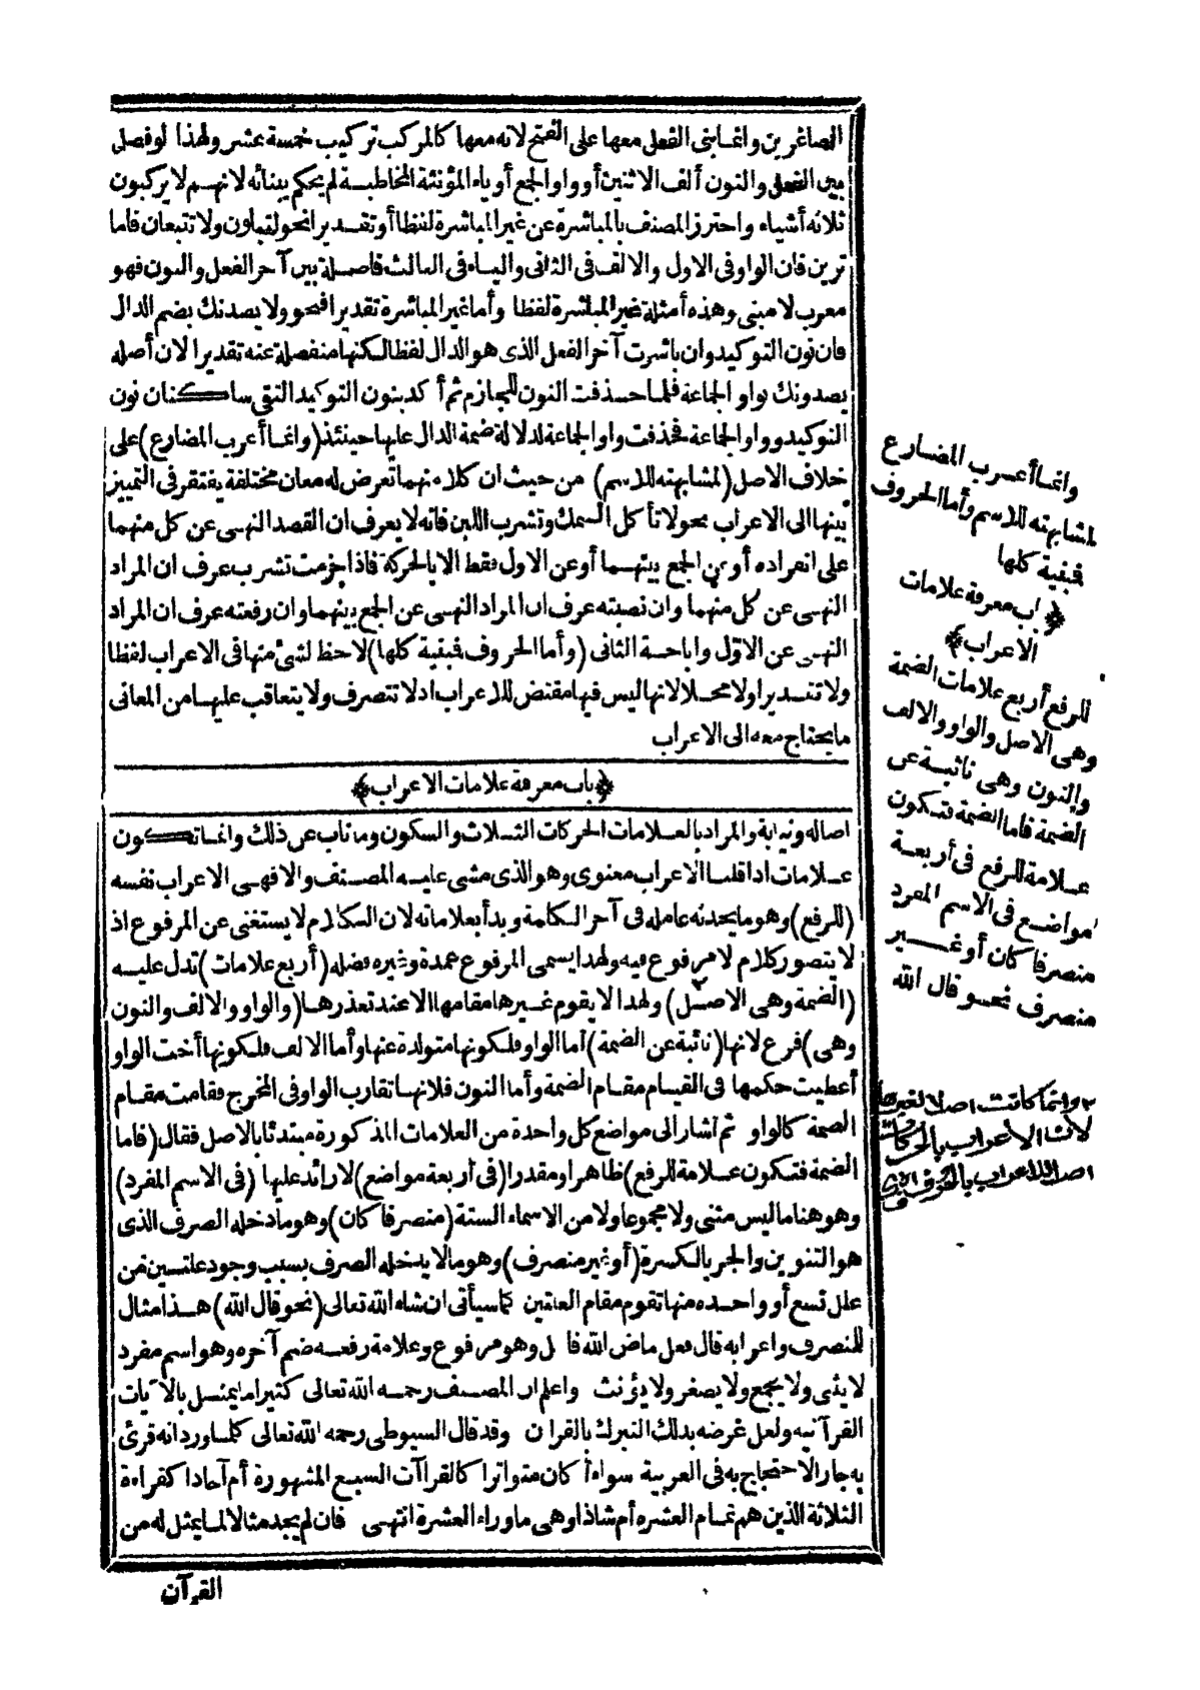 الصاغرين وانما بنى الفعل معها على الفتح لانه معها كالمركب تركيب خمسة عشر ولهذا لو فصل
بين الفعل والنون ألف الاثنين أو واو الجمع أو ياء المؤنثة المخاطبة لم يحكم ببنائه لانهم لا يركبون
ثلاثة أشياء واحترز المصنف بالمباشرة عن غير المباشرة لفظا أو تقديرا نحو لتبلون ولا تتبعان فاما
ترين فان الواو فى الاول والالف فى الثانى والياء فى الثالث فاصلة بين آخر الفعل والنون فهو
معرب لا مبنى وهذه أمثلة غير المباشرة لفظا وأما غير المباشرة تقديرا فنحو ولا يصدنك بضم الدال
فان نون التوكيد وان باشرت آخر الفعل الذى هو الدال لفظا لكنها منفصلة عنه تقديرا لان أصله
يصدونك بواو الجماعة فلما حذفت النون للجازم ثم أكد بنون التوكيد التقى ساكنان نون
التوكيد وواو الجماعة فحذفت واو الجماعة لدلالة ضمة الدال عليها حينئذ (وانما أعرب المضارع) على
خلاف الاصل (لمشابهته للاسم) من حيث ان كلا منهما تعرض له معان مختلفة يفتقر فى التمييز
بينها الى الاعراب نحو لا تأكل السمك وتشرب اللبن فانه لا يعرف ان القصد النهى عن كل منهما
على انفراده أو عن الجمع بينهما أو عن الاول فقط الا بالحركة فاذا جزمت تشرب عرف ان المراد
النهى عن كل منهما وان نصبته عرف ان المراد النهى عن الجمع بينهما وان رفعته عرف ان المراد
النهى عن الاول واباحة الثانى (وأما الحروف فمبنية كلها) لا حظ لشئ منها فى الاعراب لفظا
ولا تقديرا ولا محلا لانها ليس فيها مقتض للاعراب اذ لا تتصرف ولا يتعاقب عليها من المعانى
ما يحتاج معه الى الاعراب
﴿باب معرفة علامات الاعراب﴾
اصالة ونيابة والمراد بالعلامات الحركات الثلاث والسكون وما ناب عن ذلك وانما تكون
علامات اذا قلنا الاعراب معنوى وهو الذى مشى عليه المصنف والا فهى الاعراب نفسه
(للرفع) وهو ما يحدثه عامله فى آخر الكلمة وبدأ بعلاماته لان الكلام لا يستغنى عن المرفوع اذ
لا يتصور كلام لا مرفوع فيه ولهذا يسمى المرفوع عمدة وغيره فضلة (أربع علامات) تدل عليه
(الضمة وهى الاصل) ٢ ولهذا لا يقوم غيرها مقامها الا عند تعذرها (والواو والالف والنون
وهى) فرع لانها (نائبة عن الضمة) اما الواو فلكونها متولدة عنها وأما الالف فلكونها أخت الواو
أعطيت حكمها فى القيام مقام الضمة وأما النون فلانها تقارب الواو فى المخرج فقامت مقام
الضمة كالواو ثم أشار الى مواضع كل واحدة من العلامات المذكورة مبتدئا بالاصل فقال (فاما
الضمة فتكون علامة للرفع) ظاهرا ومقدرا (فى أربعة مواضع) لا زائد عليها (فى الاسم المفرد)
وهو هنا ما ليس مثنى ولا مجموعا ولا من الاسماء الستة (منصرفا كان) وهو ما دخله الصرف الذى
هو التنوين والجر بالكسرة (أو غير منصرف) وهو ما لا يدخله الصرف بسبب وجود علتين من
علل تسع أو واحدة منها تقوم مقام العلتين كما سيأتى ان شاء الله تعالى (نحو قال الله) هذا مثال
للمنصرف واعرابه قال فعل ماض الله فاعل وهو مرفوع وعلامة رفعه ضم آخره وهو اسم مفرد
لا يثنى ولا يجمع ولا يصغر ولا يؤنث واعلم ان المصنف رحمه الله تعالى كثيرا ما يمثل بالآيات
القرآنية ولعل غرضه بذلك التبرك بالقرآن وقد قال السيوطى رحمه الله تعالى كلما ورد انه قرئ
به جاز الاحتجاج به فى العربية سواء أكان متواترا كالقراآت السبع المشهورة أم آحادا كقراءة
الثلاثة الذين هم تمام العشرة أم شاذا وهى ما وراء العشرة انتهى فان لم يجد مثالا لما يمثل له من
القرآن
وانما أعرب المضارع
لمشابهته للاسم وأما الحروف
فمبنية كلها
﴿باب معرفة علامات
الاعراب﴾
للرفع أربع علامات الضمة
وهى الاصل والواو والالف
والنون وهى نائبة عن
الضمة فاما الضمة فتكون
علامة للرفع فى أربعة
مواضع فى الاسم المفرد
منصرفا كان أو غير
منصرف نحو قال الله
٢ وانما كانت اصلا لغيرها
لأن الأعراب بالحركات
اصل للاعراب بالحروف